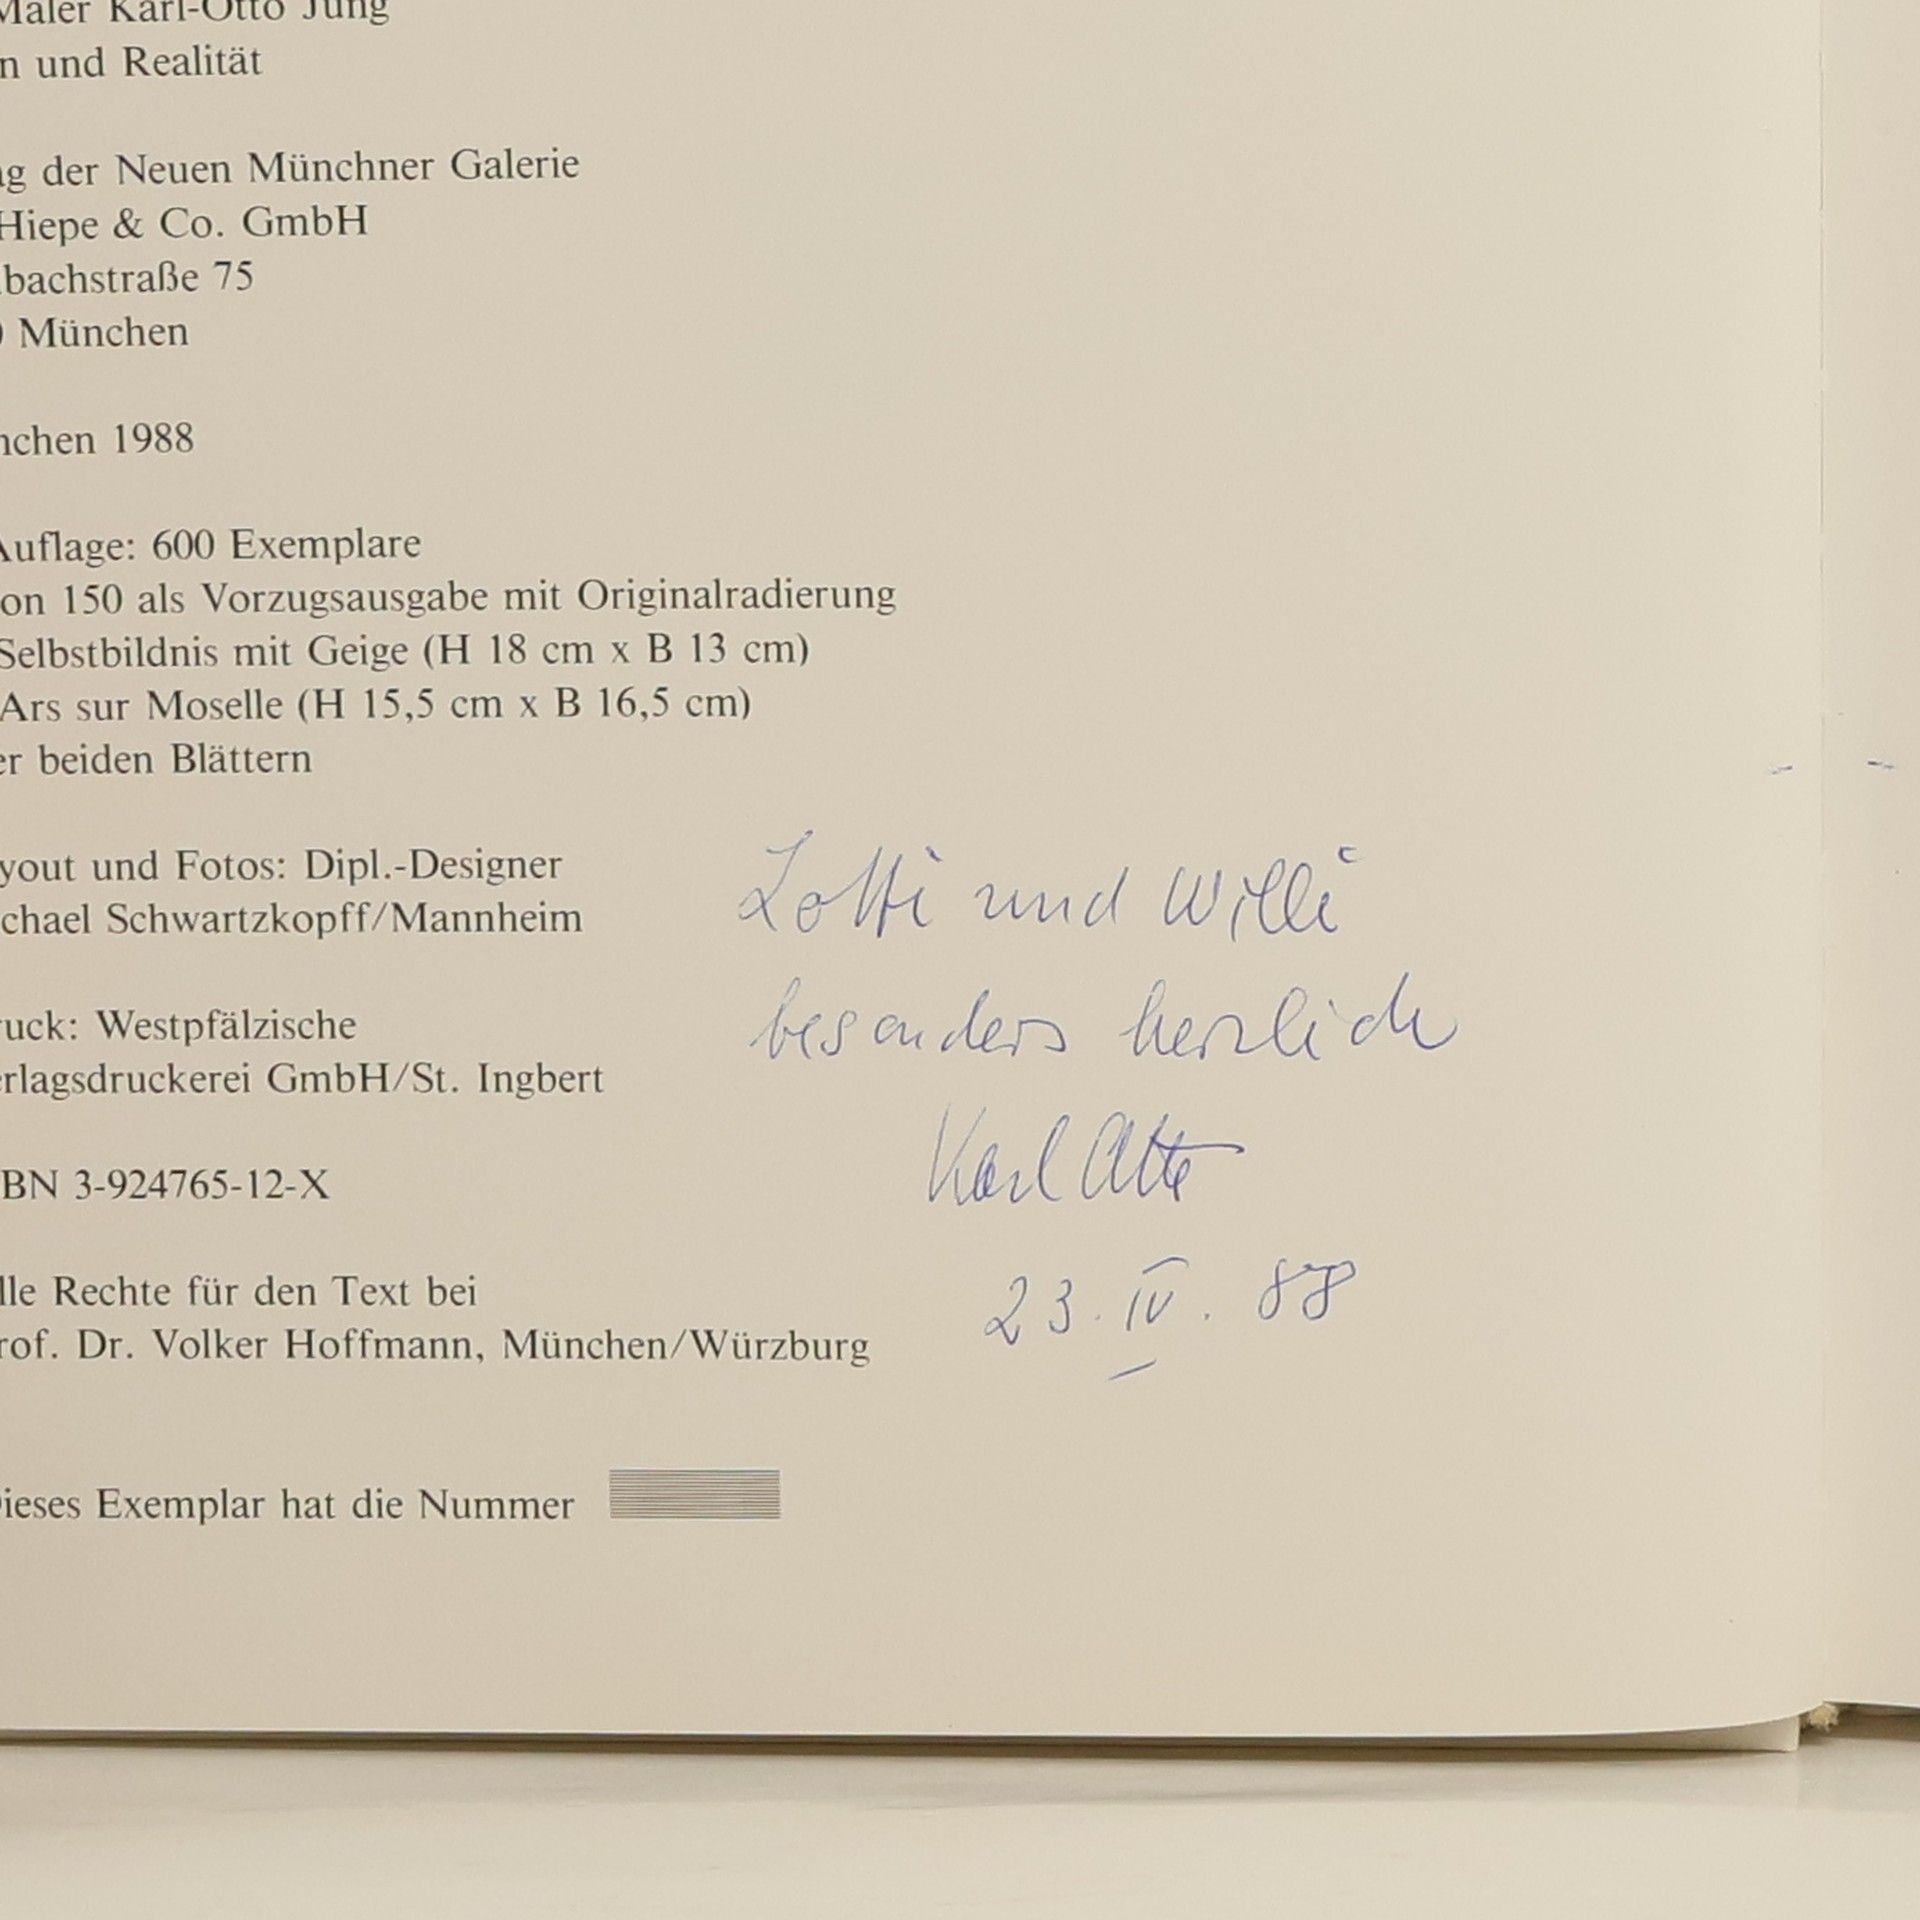 Maler Karl-Otto Jung
n und Realität
ng der Neuen Münchner Galerie
Hiepe & Co. GmbH
bachstraße 75
0 München
nchen 1988
Auflage: 600 Exemplare
on 150 als Vorzugsausgabe mit Originalradierung
Selbstbildnis mit Geige (H 18 cm x B 13 cm)
Ars sur Moselle (H 15,5 cm x B 16,5 cm)
er beiden Blättern
yout und Fotos: Dipl.-Designer
chael Schwartzkopff/Mannheim
Lotti und Willi
besonders herzlich
ruck: Westpfälzische
erlagsdruckerei GmbH/St. Ingbert
Karl Otto
BN 3-924765-12-X
23. IV. 88
lle Rechte für den Text bei
rof. Dr. Volker Hoffmann, München/Würzburg
Dieses Exemplar hat die Nummer